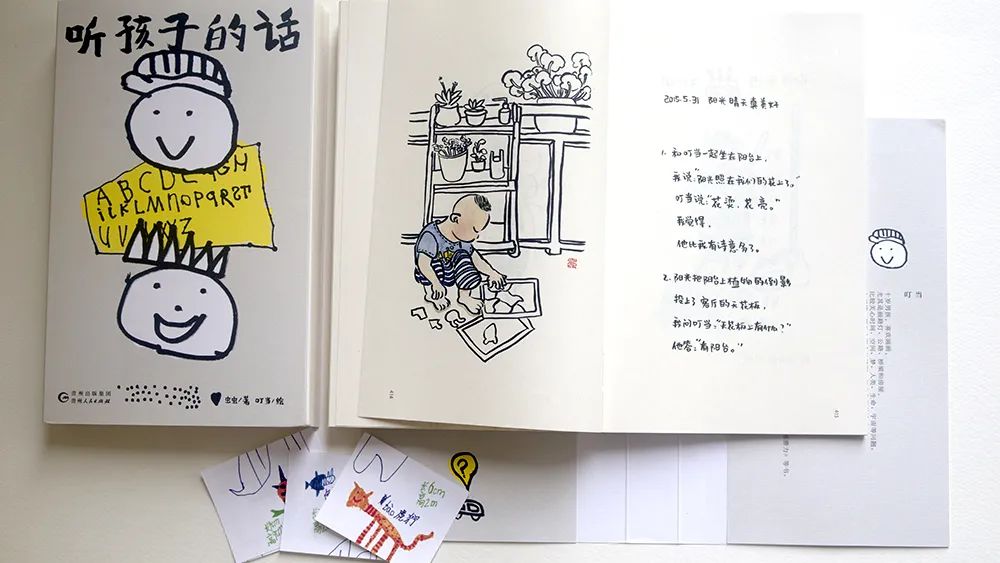 听孩子的话
A B C D E F G H
i J K L M n O P q R S T
U V W X Y Z
贵州出版集团
贵州人民出版社
虫虫/著 叮当/绘
2015.5.31 阳光晴天真美好
1. 和叮当一起坐在阳台上，
我说:“阳光照在我们的花上了。”
叮当说:“花烫，花亮。”
我觉得，
他比我有诗意多了。
2. 阳光把阳台上植物的倒影
投上了客厅的天花板，
我问叮当:“天花板上有什么？”
他答:“有阳台。”
414
415
叮当
十岁男孩，喜欢画画，
?
长6cm
高2m